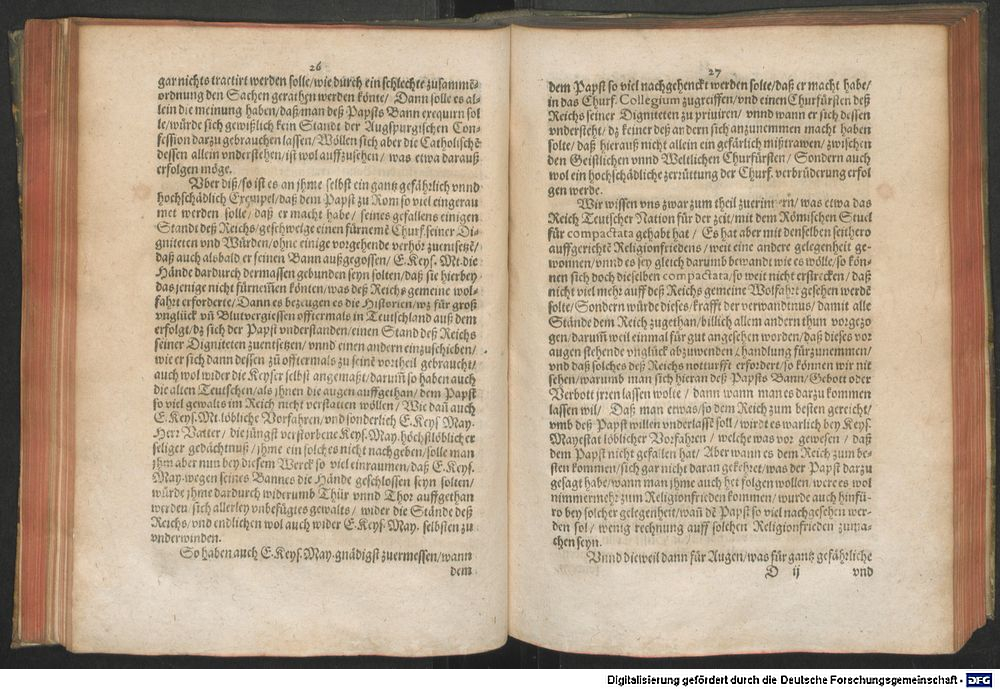 26
gar nichts tractirt werden solle/wie durch ein schlechte zusammē⸗
ordnung den Sachen gerathen werden könte/ Dann solle es al⸗
lein die meinung haben/daß man deß Papsts Bann exequirn sol
le/würde sich gewißlich kein Standt der Augspurgischen Con⸗
fession darzu gebrauchen lassen/Wöllen sich aber die Catholischē
dessen allein vnderstehen/ist wol auffzusehen/ was etwa darauß
erfolgen möge.
Vber diß/so ist es an jhme selbst ein gantz gefährlich vnnd
hochschädlich Exempel/daß dem Papst zu Rom so viel eingerau
met werden solle/daß er macht habe/ seines gefallens einigen
Standt deß Reichs/geschwelge einen fürnemē Churf.seiner Di⸗
gniteten vnd Würden/ohne einige vorgehende verhör zuensetzē/
daß auch alsbald er seinen Bann außgegossen/ E.Keys. Mt.die
Hände dardurch dermassen gebunden seyn solten/daß sie hierbey
das jenige nicht fürnem̄en könten/was deß Reichs gemeine wol⸗
fahrt erforderte/Dann es bezeugen es die Historien/wz für groß
vnglück vñ Blutvergiessen offtermals in Teutschland auß dem
erfolgt/dz sich der Papst vnderstanden/einen Stand deß Reichs
seiner Digniteten zuentsetzen/ vnnd einen andern einzuschieben/
wie er sich dann dessen zů offtermals zu seinē vortheil gebraucht/
auch wol wider die Keyser selbst angemaßt/darum̄ so haben auch
die alten Teutschen/als jhnen die augen auffgethan/dem Papst
so viel gewalts im Reich nicht verstatten wöllen/Wie dañ auch
E.Keys.Mt.löbliche Vorfahren/vnd sonderlich E.Keys May.
Herr Vatter/ die jüngst verstorbene Keys.May.höchstlöblich er
seliger gedächtnuß/jhme ein solches nicht nachgeben/solle man
jhm aber nun bey diesem Werck so viel einraumen/daß E.Keys.
May.wegen seines Bannes die Hände geschlossen seyn solten/
würde jhme dardurch widerumb Thür vnnd Thor auffgethan
werden sich allerley vnbefügtes gewalts/ wider die Stände deß
Reichs/vnd endlichen wol auch wider E.Keys.May. selbsten zu
vnderwinden.
So haben auch E.Keys.May.gnädigst zuermessen/wann
dem
27
dem Papst so viel nachgehenckt werden solte/daß er macht habe/
in das Churf.Collegium zugreiffen/vnd einen Churfürsten deß
Reichs seiner Digniteten zu priuiren/ vnnd wann er sich dessen
vndersteht/ dz keiner deß andern sich anzunemmen macht haben
solte/ daß hierauß nicht allein ein gefärlich mißtrawen/zwischen
den Geistlichen vnnd Weltlichen Churfürsten/ Sondern auch
wol ein hochschädliche zerrüttung der Churf.verbrüderung erfol
gen werde.
Wir wissen vns zwar zum theil zuerinnern/ was etwa das
Reich Teutscher Nation für der zeit/mit dem Römischen Stuel
für compactata gehabt hat/ Es hat aber mit denselben seithero
auffgerichtē Religionfriedens/weit eine andere gelegenheit ge⸗
wonnen/vnnd es sey gleich darumb bewandt wie es wölle/so kön⸗
nen sich doch dieselben compactata/so weit nicht erstrecken/ daß
nicht viel mehr auff deß Reichs gemeine Wolfahrt gesehen werdē
solte/Sondern würde dieses/krafft der verwandtnus/damit alle
Stände dem Reich zugethan/billich allem andern thun vorgezo
gen/darum̄ weil einmal für gut angesehen worden/daß dieses vor
augen stehende vnglück abzuwenden handlung fürzunemmen/
vnd daß solches deß Reichs notturfft erfordert/so können wir nit
sehen/warumb man sich hieran deß Papsts Bann/Gebott oder
Verbott jrren lassen wolle/ dann wann man es darzu kommen
lassen wil/ Daß man etwas/so dem Reich zum besten gereicht/
vmb deß Papst willen vnderlassē soll/wirdt es warlich bey Keys.
Mayestat löblicher Vorfahren/ welche was vor gewesen/ daß
dem Papst nicht gefallen hat/ Aber wann es dem Reich zum be⸗
sten kommen/sich gar nicht daran gekehret/was der Papst darzu
gesagt habe/wann man jhme auch het folgen wollen/were es wol
nimmermehr zum Religionfrieden kommen/wurde auch hinfü⸗
ro bey solcher gelegenheit/wañ dē Papst so viel nachgesehen wer⸗
den sol/ wenig rechnung auff solchen Religionfrieden zuma⸗
chen seyn.
Vnnd dieweil dann für Augen/was für gantz gefährliche
D ij vnd
Digitalisierung gefördert durch die Deutsche Forschungsgemeinschaft - DFG